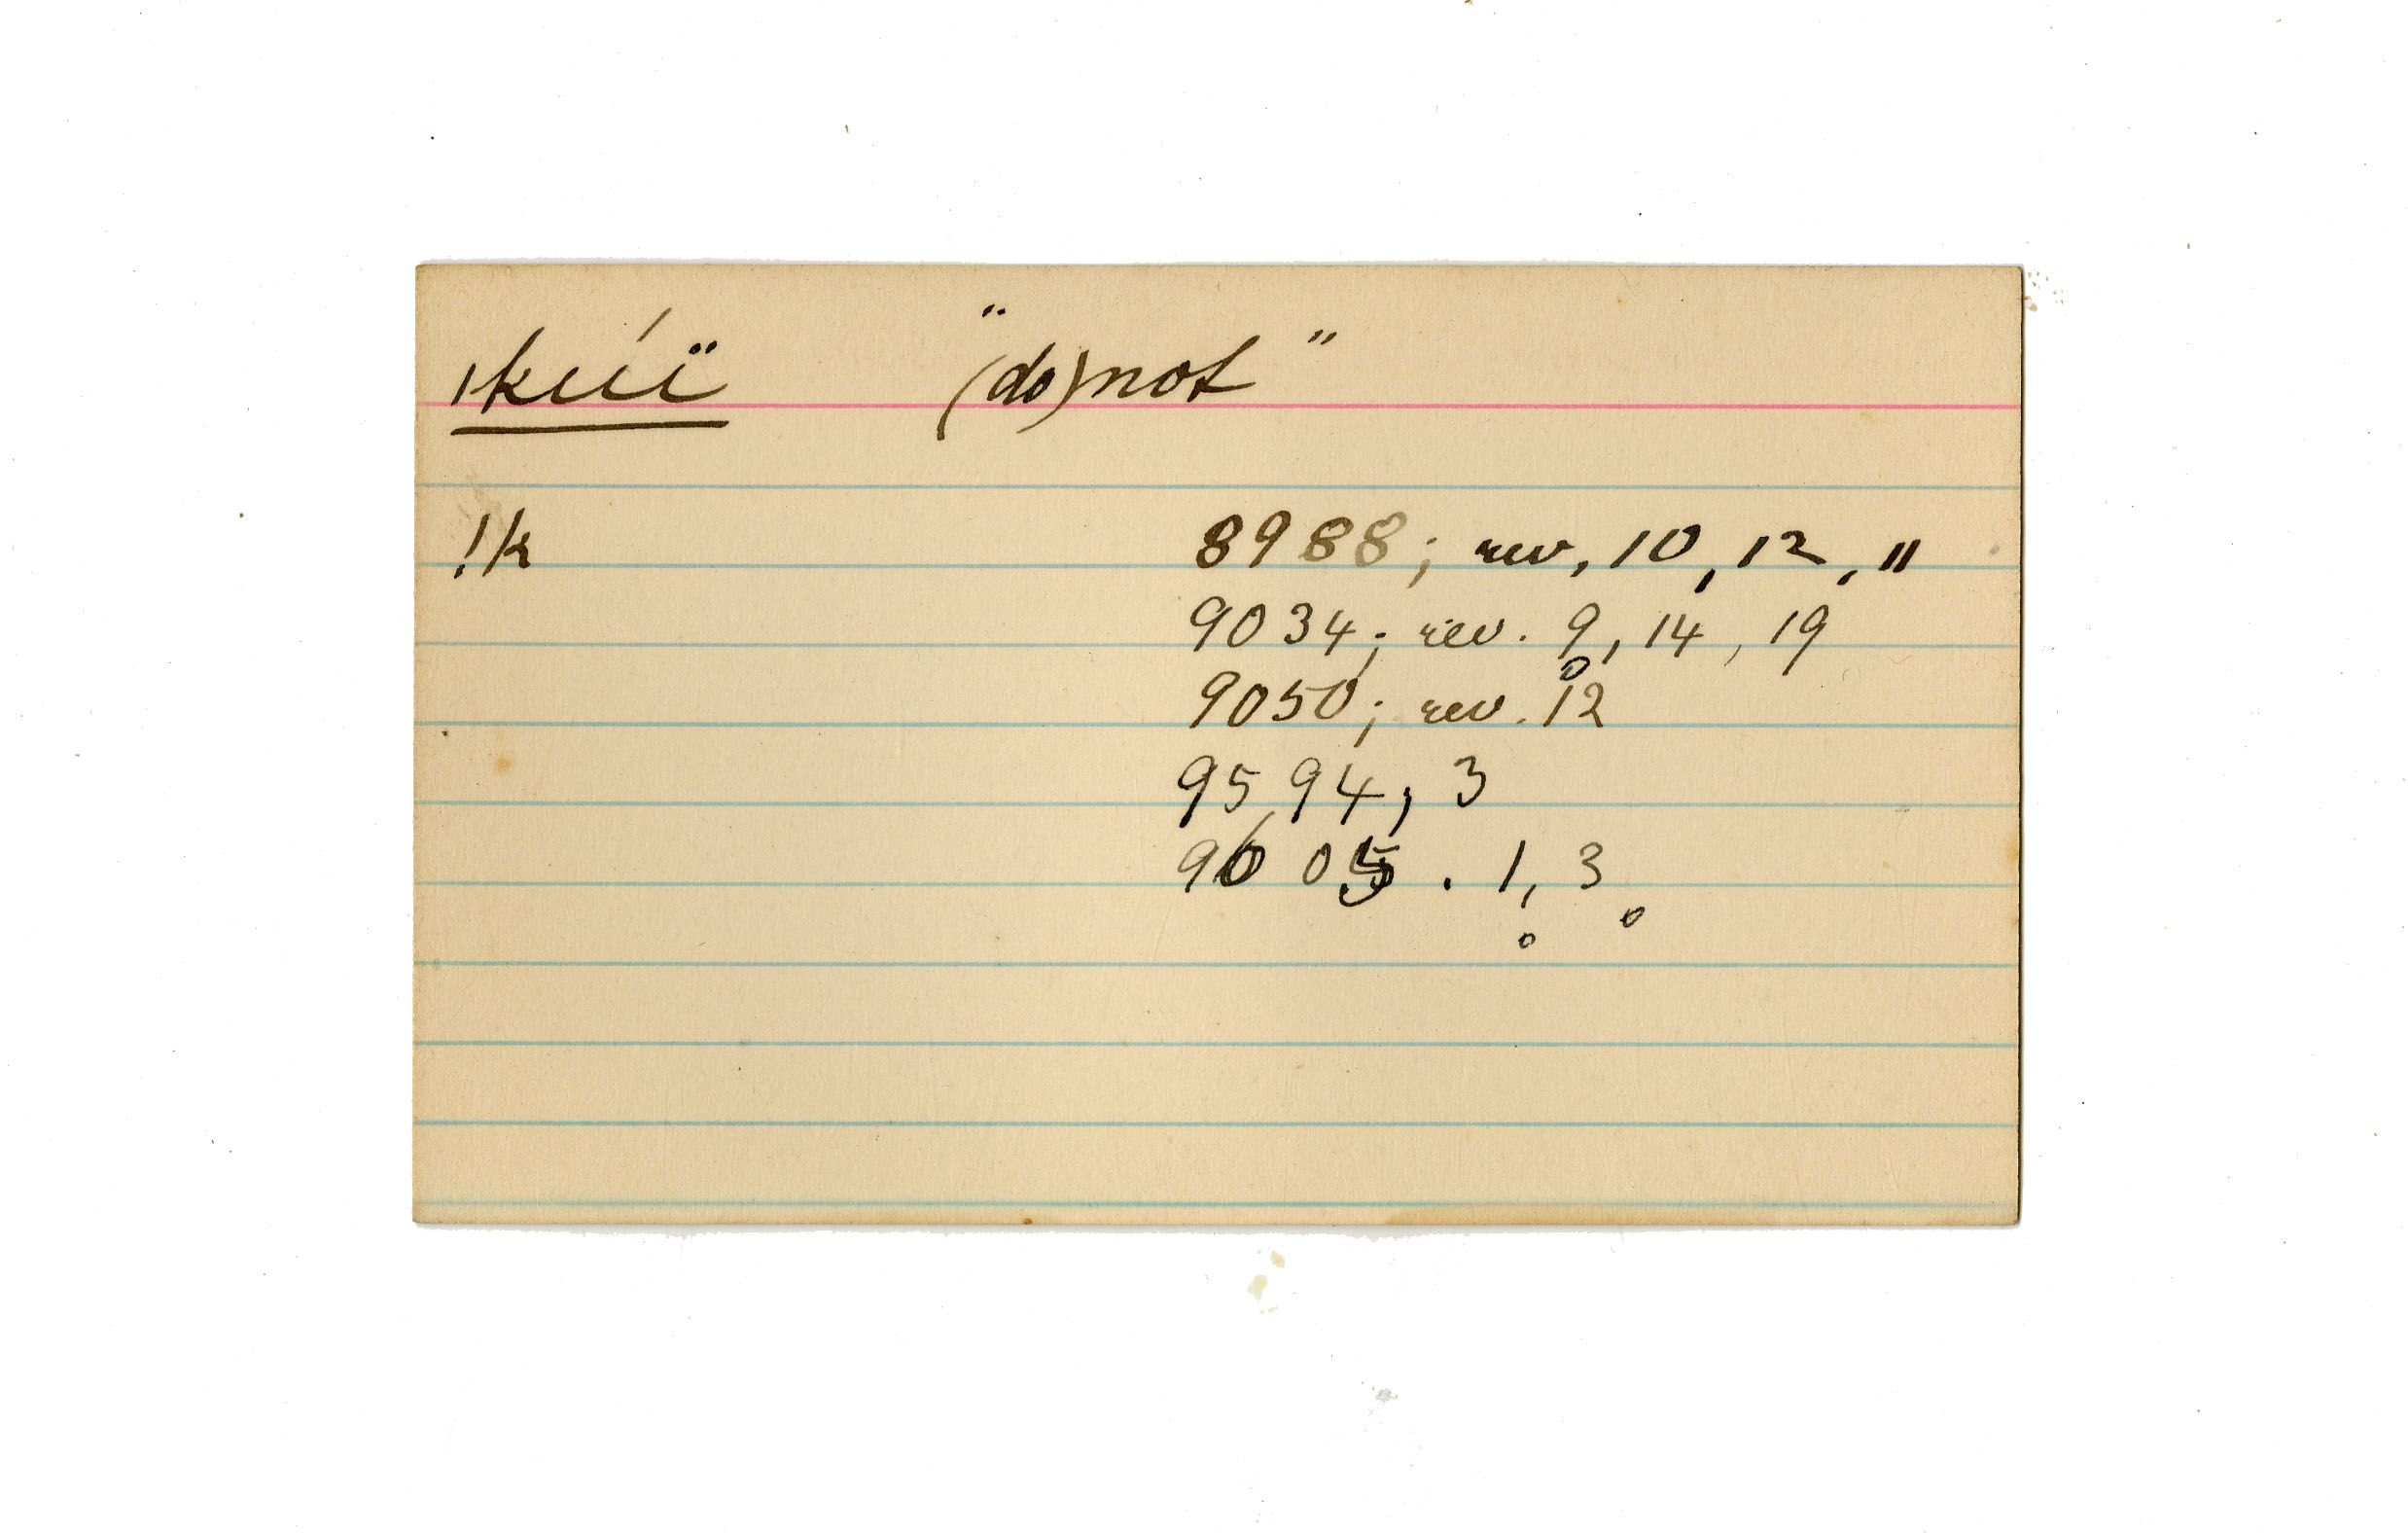 ǀkuíï "(do) not"
!k 8988; rev. 10, 12, 11
9034; rev. 9, 14, 19
9050; rev. 12
9594, 3
9605. 1, 3